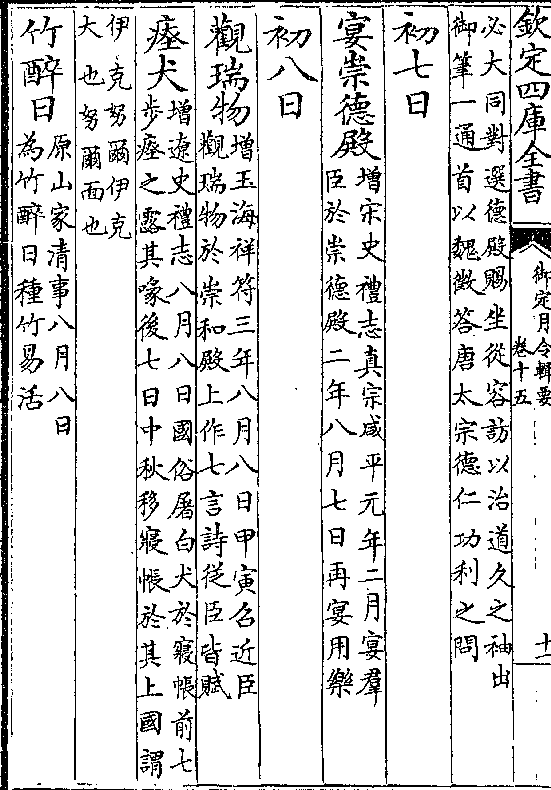 欽定四庫全書
御定月令輯要
卷十五
十一
必大同對選德殿賜坐從容訪以治道久之袖出
御筆一通首以魏徵答唐太宗德仁功利之問
初七日
宴崇德殿
增宋史禮志真宗咸平元年二月宴羣
臣於崇德殿二年八月七日再宴用樂
初八日
觀瑞物
增玉海祥符三年八月八日甲寅召近臣
觀瑞物於崇和殿上作七言詩從臣皆賦
瘞犬
增遼史禮志八月八日國俗屠白犬於寢帳前七
步瘞之露其喙後七日中秋移寢帳於其上國謂
伊克努爾伊克
大也努爾面也
竹醉日
原山家清事八月八日
為竹醉日種竹易活